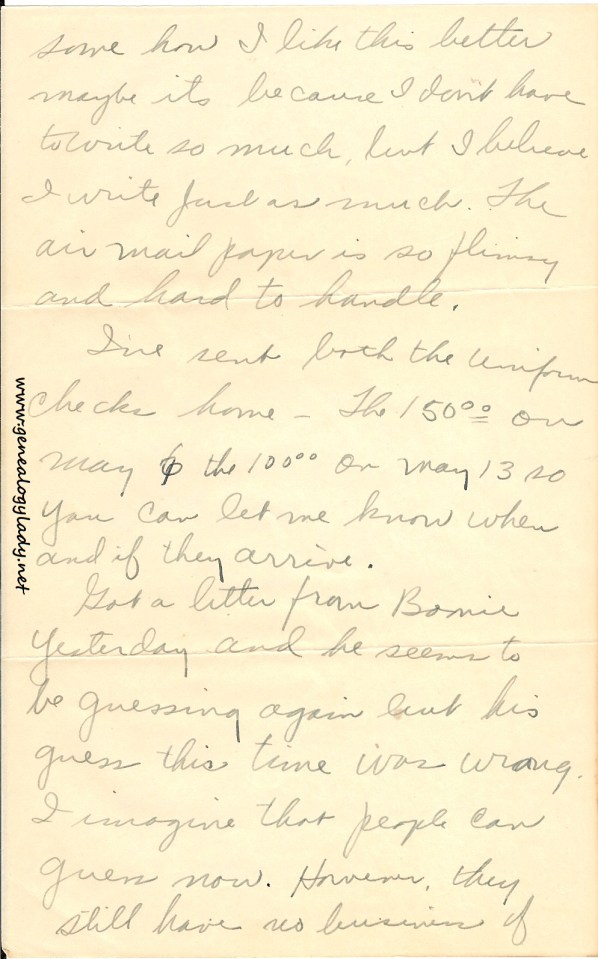 some how I like this better
maybe its because I don't have
to write so much, but I believe
I write just as much. The
air mail paper is so flimsy
and hard to handle.
I've sent both the uniform
checks home - The 150⁰⁰ on
may 6 the 100⁰⁰ on may 13 so
you can let me know when
and if they arrive.
Got a letter from Bomie
yesterday and he seems to
be guessing again but his
guess this time was wrong.
I imagine that people can
guess now. However, they
still have no business if
www.genealogylady.net